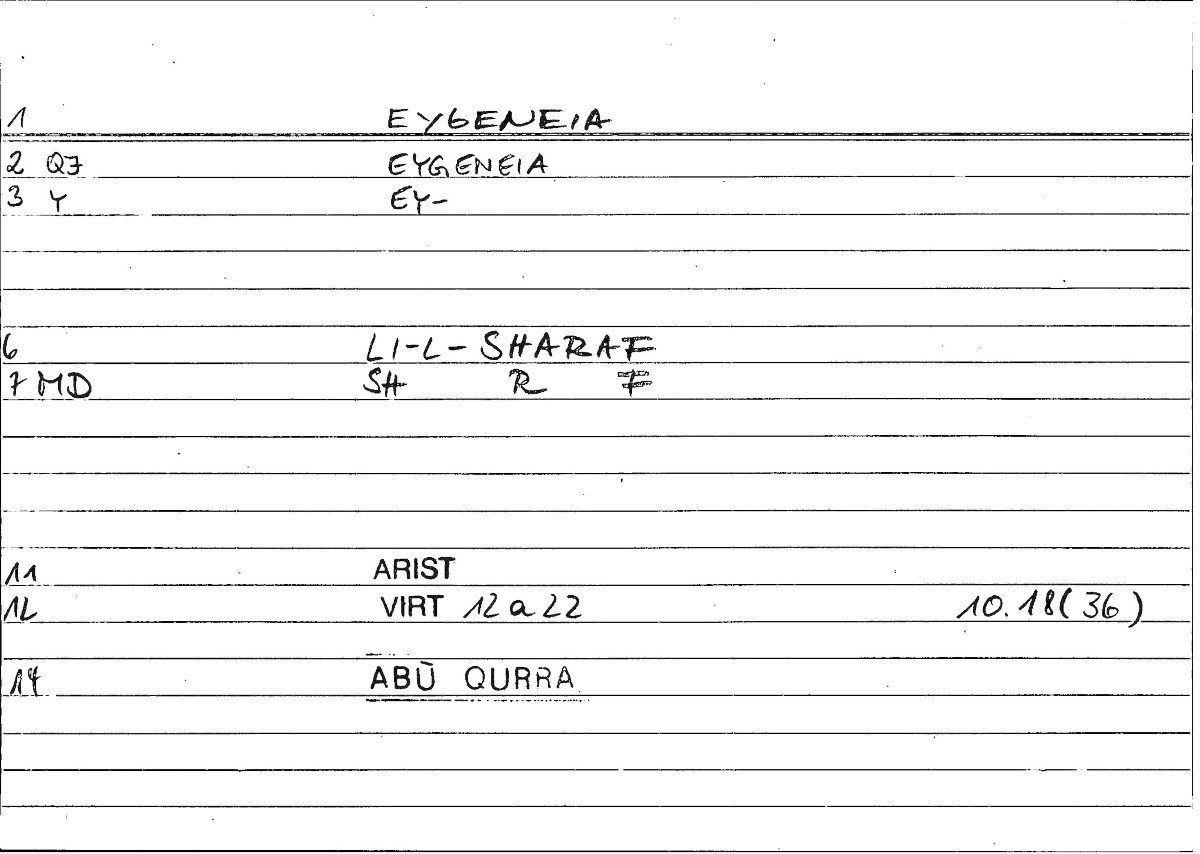 1 EYGENEIA
2 QF EYGENEIA
3 Y EY-
6 LI-L-SHARAF
7 MD SH R F
11 ARIST
12 VIRT 12 a 22 10.18(36)
14 ABŪ QURRA